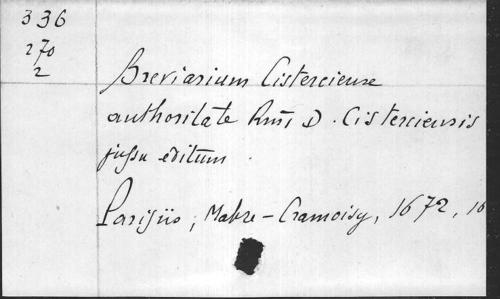 336
270
2
Breviarium Cisterciense
authoritate Rmi D. Cisterciensis
jussu editum
Parisiis, Mabre-Cramoisy, 1672, 16